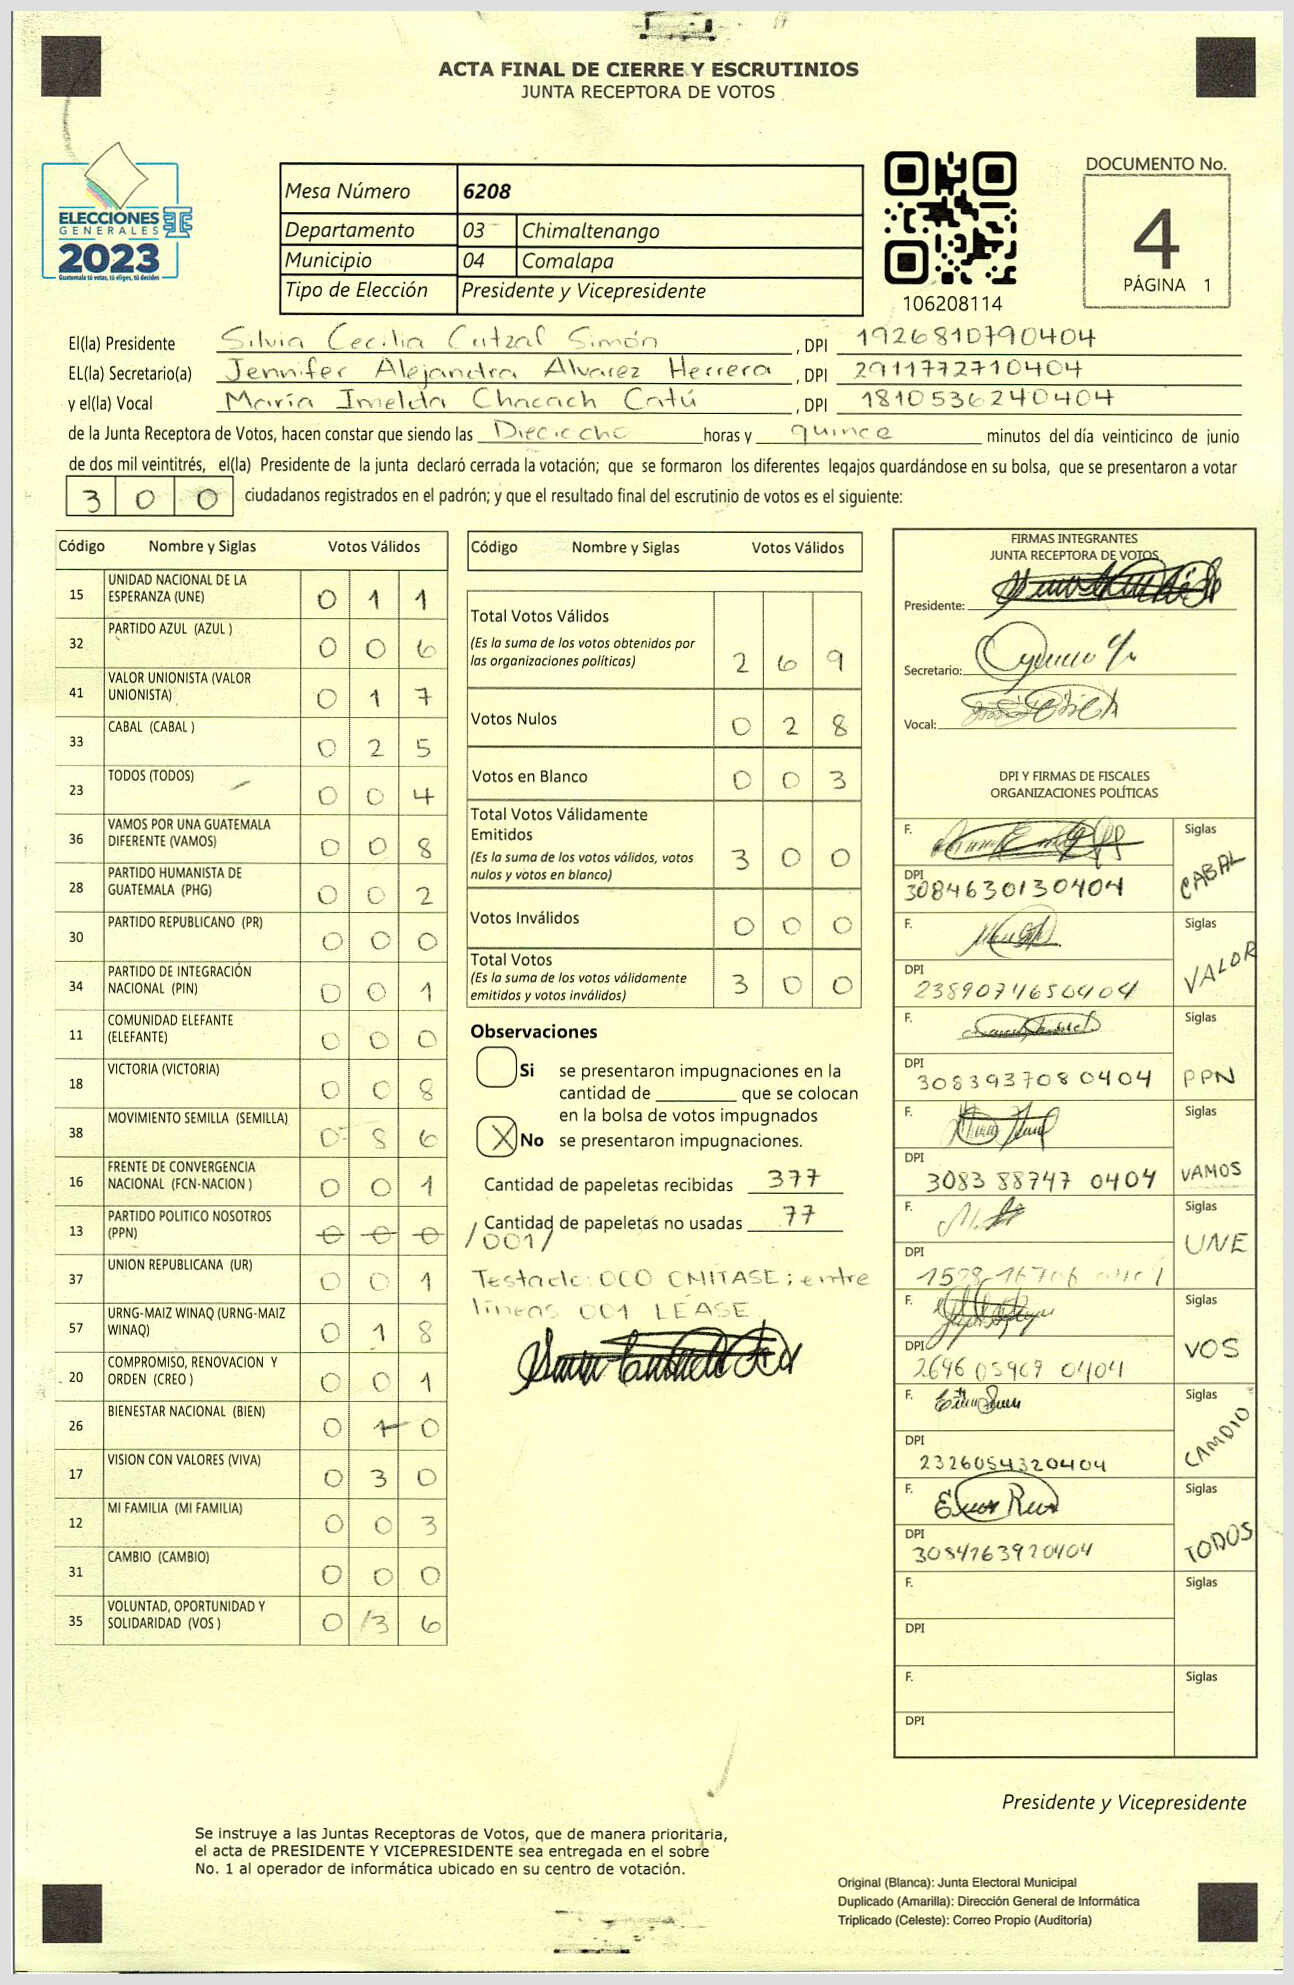 ACTA FINAL DE CIERRE Y ESCRUTINIOS
JUNTA RECEPTORA DE VOTOS
ELECCIONES
GENERALES
2023
Guatemala tú votas, tú eliges, tú decides
Mesa Número 6208
Departamento 03 Chimaltenango
Municipio 04 Comalapa
Tipo de Elección Presidente y Vicepresidente
106208114
DOCUMENTO No.
4
PÁGINA 1
El(la) Presidente Silvia Cecilia Cutzal Simón , DPI 1926810790404
EL(la) Secretario(a) Jennifer Alejandra Alvarez Herrera , DPI 2911772710404
y el(la) Vocal María Imelda Chacach Catú , DPI 1810536240404
de la Junta Receptora de Votos, hacen constar que siendo las Dieciocho horas y quince minutos del día veinticinco de junio
de dos mil veintitrés, el(la) Presidente de la junta declaró cerrada la votación; que se formaron los diferentes legajos guardándose en su bolsa, que se presentaron a votar
3 0 0 ciudadanos registrados en el padrón; y que el resultado final del escrutinio de votos es el siguiente:
Código Nombre y Siglas Votos Válidos
15 UNIDAD NACIONAL DE LA ESPERANZA (UNE) 0 1 1
32 PARTIDO AZUL (AZUL ) 0 0 6
41 VALOR UNIONISTA (VALOR UNIONISTA) 0 1 7
33 CABAL (CABAL ) 0 2 5
23 TODOS (TODOS) 0 0 4
36 VAMOS POR UNA GUATEMALA DIFERENTE (VAMOS) 0 0 8
28 PARTIDO HUMANISTA DE GUATEMALA (PHG) 0 0 2
30 PARTIDO REPUBLICANO (PR) 0 0 0
34 PARTIDO DE INTEGRACIÓN NACIONAL (PIN) 0 0 1
11 COMUNIDAD ELEFANTE (ELEFANTE) 0 0 0
18 VICTORIA (VICTORIA) 0 0 8
38 MOVIMIENTO SEMILLA (SEMILLA) 0 8 6
16 FRENTE DE CONVERGENCIA NACIONAL (FCN-NACION ) 0 0 1
13 PARTIDO POLITICO NOSOTROS (PPN) 0 0 0 /001/
37 UNION REPUBLICANA (UR) 0 0 1
57 URNG-MAIZ WINAQ (URNG-MAIZ WINAQ) 0 1 8
20 COMPROMISO, RENOVACION Y ORDEN (CREO ) 0 0 1
26 BIENESTAR NACIONAL (BIEN) 0 1 0
17 VISION CON VALORES (VIVA) 0 3 0
12 MI FAMILIA (MI FAMILIA) 0 0 3
31 CAMBIO (CAMBIO) 0 0 0
35 VOLUNTAD, OPORTUNIDAD Y SOLIDARIDAD (VOS ) 0 3 6
Código Nombre y Siglas Votos Válidos
Total Votos Válidos 2 6 9
(Es la suma de los votos obtenidos por
las organizaciones políticas)
Votos Nulos 0 2 8
Votos en Blanco 0 0 3
Total Votos Válidamente
Emitidos 3 0 0
(Es la suma de los votos válidos, votos
nulos y votos en blanco)
Votos Inválidos 0 0 0
Total Votos 3 0 0
(Es la suma de los votos válidamente
emitidos y votos inválidos)
Observaciones
Si se presentaron impugnaciones en la
cantidad de ________ que se colocan
en la bolsa de votos impugnados
X No se presentaron impugnaciones.
Cantidad de papeletas recibidas 377
Cantidad de papeletas no usadas 77
Testado: 000 OMITASE; entre
líneas 001 LEASE
FIRMAS INTEGRANTES
JUNTA RECEPTORA DE VOTOS
Presidente:
Secretario:
Vocal:
DPI Y FIRMAS DE FISCALES
ORGANIZACIONES POLÍTICAS
F. Siglas CABAL
DPI 3084630130404
F. Siglas VALOR
DPI 2389074650404
F. Siglas PPN
DPI 3083937080404
F. Siglas VAMOS
DPI 3083 88747 0404
F. Siglas UNE
DPI
F. Siglas VOS
DPI 2696 05907 0404
F. Siglas CAMDIO
DPI 2326054320404
F. Siglas TODOS
DPI 3084263920404
F. Siglas
DPI
F. Siglas
DPI
Presidente y Vicepresidente
Se instruye a las Juntas Receptoras de Votos, que de manera prioritaria,
el acta de PRESIDENTE Y VICEPRESIDENTE sea entregada en el sobre
No. 1 al operador de informática ubicado en su centro de votación.
Original (Blanca): Junta Electoral Municipal
Duplicado (Amarilla): Dirección General de Informática
Triplicado (Celeste): Correo Propio (Auditoría)